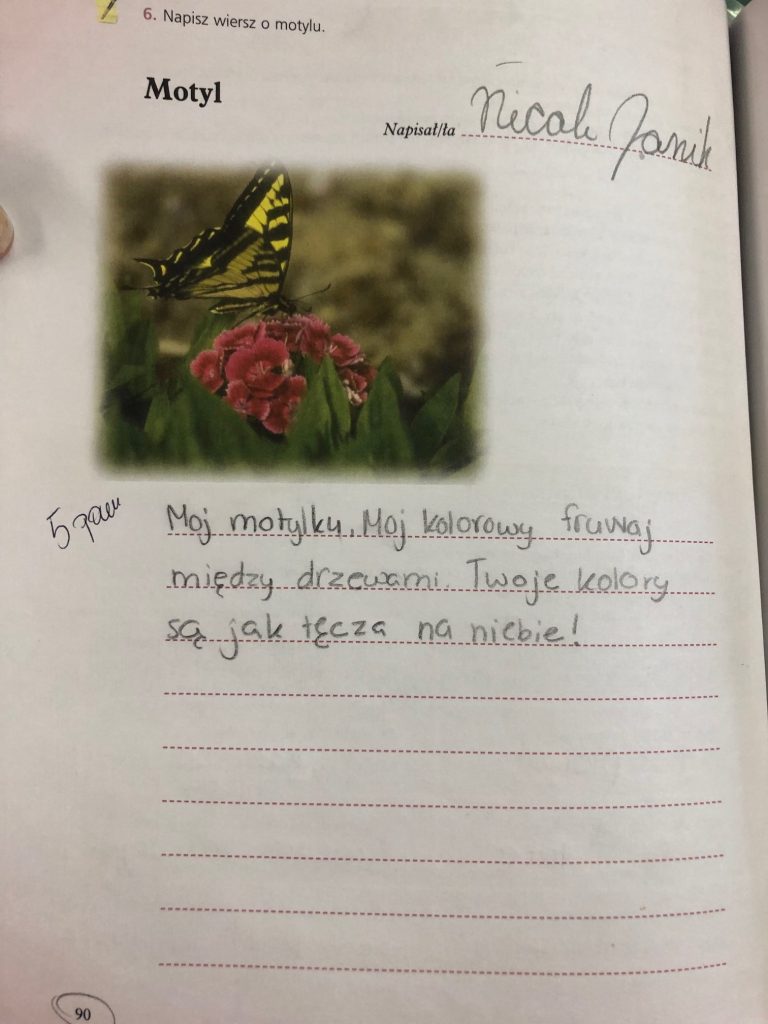 6. Napisz wiersz o motylu.
Motyl
Napisał/ła Nicole Janik
5 zdań
Moj motylku, Moj kolorowy fruwaj
między drzewami. Twoje kolory
są jak tęcza na niebie!
90